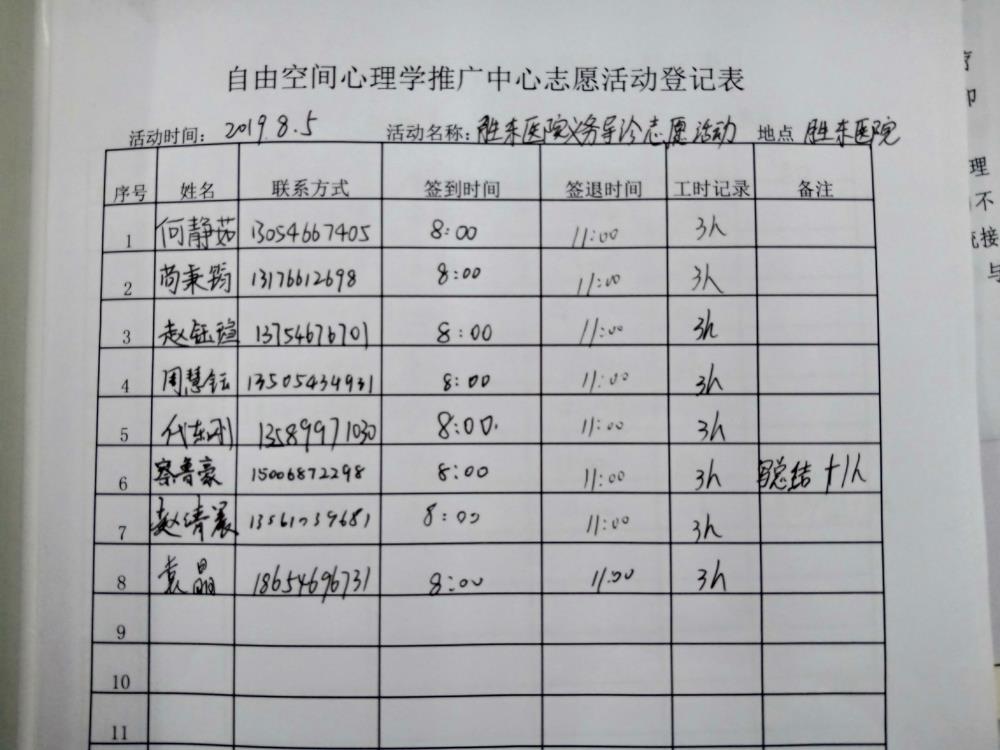 自由空间心理学推广中心志愿活动登记表
活动时间： 2019.8.5 活动名称：胜东医院义务导诊志愿活动 地点 胜东医院
序号 姓名 联系方式 签到时间 签退时间 工时记录 备注
1 何静茹 13054667405 8:00 11:00 3h
2 尚秉筠 13176612698 8:00 11:00 3h
3 赵钰瑄 13754676701 8:00 11:00 3h
4 周慧钰 13505434931 8:00 11:00 3h
5 代东刚 13589971030 8:00. 11:00 3h
6 蔡鲁豪 15006872298 8:00 11:00 3h 写总结 +1h
7 赵清晨 13561039681 8:00 11:00 3h
8 袁晶 18654696731 8:00 11:00 3h
9
10
11
理
不
接
与